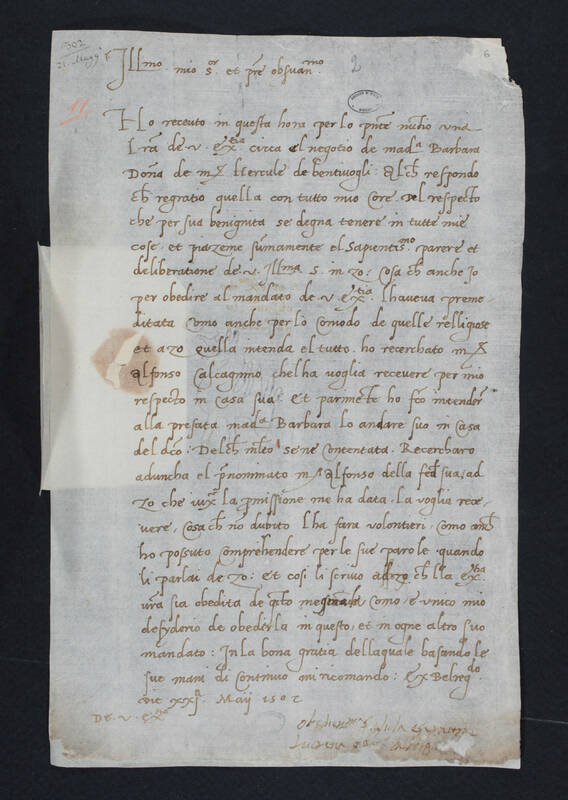 1502
21. Magg.
6
2
Ill.mo mio S.or et p.re obsvan.mo
11
Ho receuto in questa hora per lo p.nte nuntio una
l.ra de v. Ex.tia circa el negotio de mad.a Barbara
Dona de m. Hercule de bentivogli: Alch respondo
ch regratio quella con tutto mio Core del respecto
che per sua benignita se degna tenere in tutte mie
cose. et piazeme summamente el Sapientis.mo parere et
deliberatione de v. Ill.ma S. in zo: Cosa ch anche Io
per obedire al mandato de v. ex.tia. l haveva preme-
ditata como anche per lo comodo de quelle relligiose
et azo quella intenda el tutto. ho recerchato m.
Alfonso Calcagnino chel ha voglia recevere per mio
respecto in Casa sua. Et parim.te ho fco intender
alla prefata mad.a Barbara lo andare suo in Casa
del dco: Delch se ne contentata. Recercharo
aduncha el p.nominato m. Alfonso della sua: ad
zo che la p.missione me ha data. la voglia rece-
vere. Cosa ch no dubito l ha fara volontieri. como
ho possuto comprehendere per le sue parole quando
li parlai de zo: et cosi li scrivo ch lla ex.tia
vra sia obedita de como e unico mio
desyderio de obederla in questo, et in ogne altro suo
mandato: In la bona gratia dellaquale basando le
sue mani di Continuo mi ricomando: Ex Belreg.do
die xxj. Maij 1502
De v. ex.tia